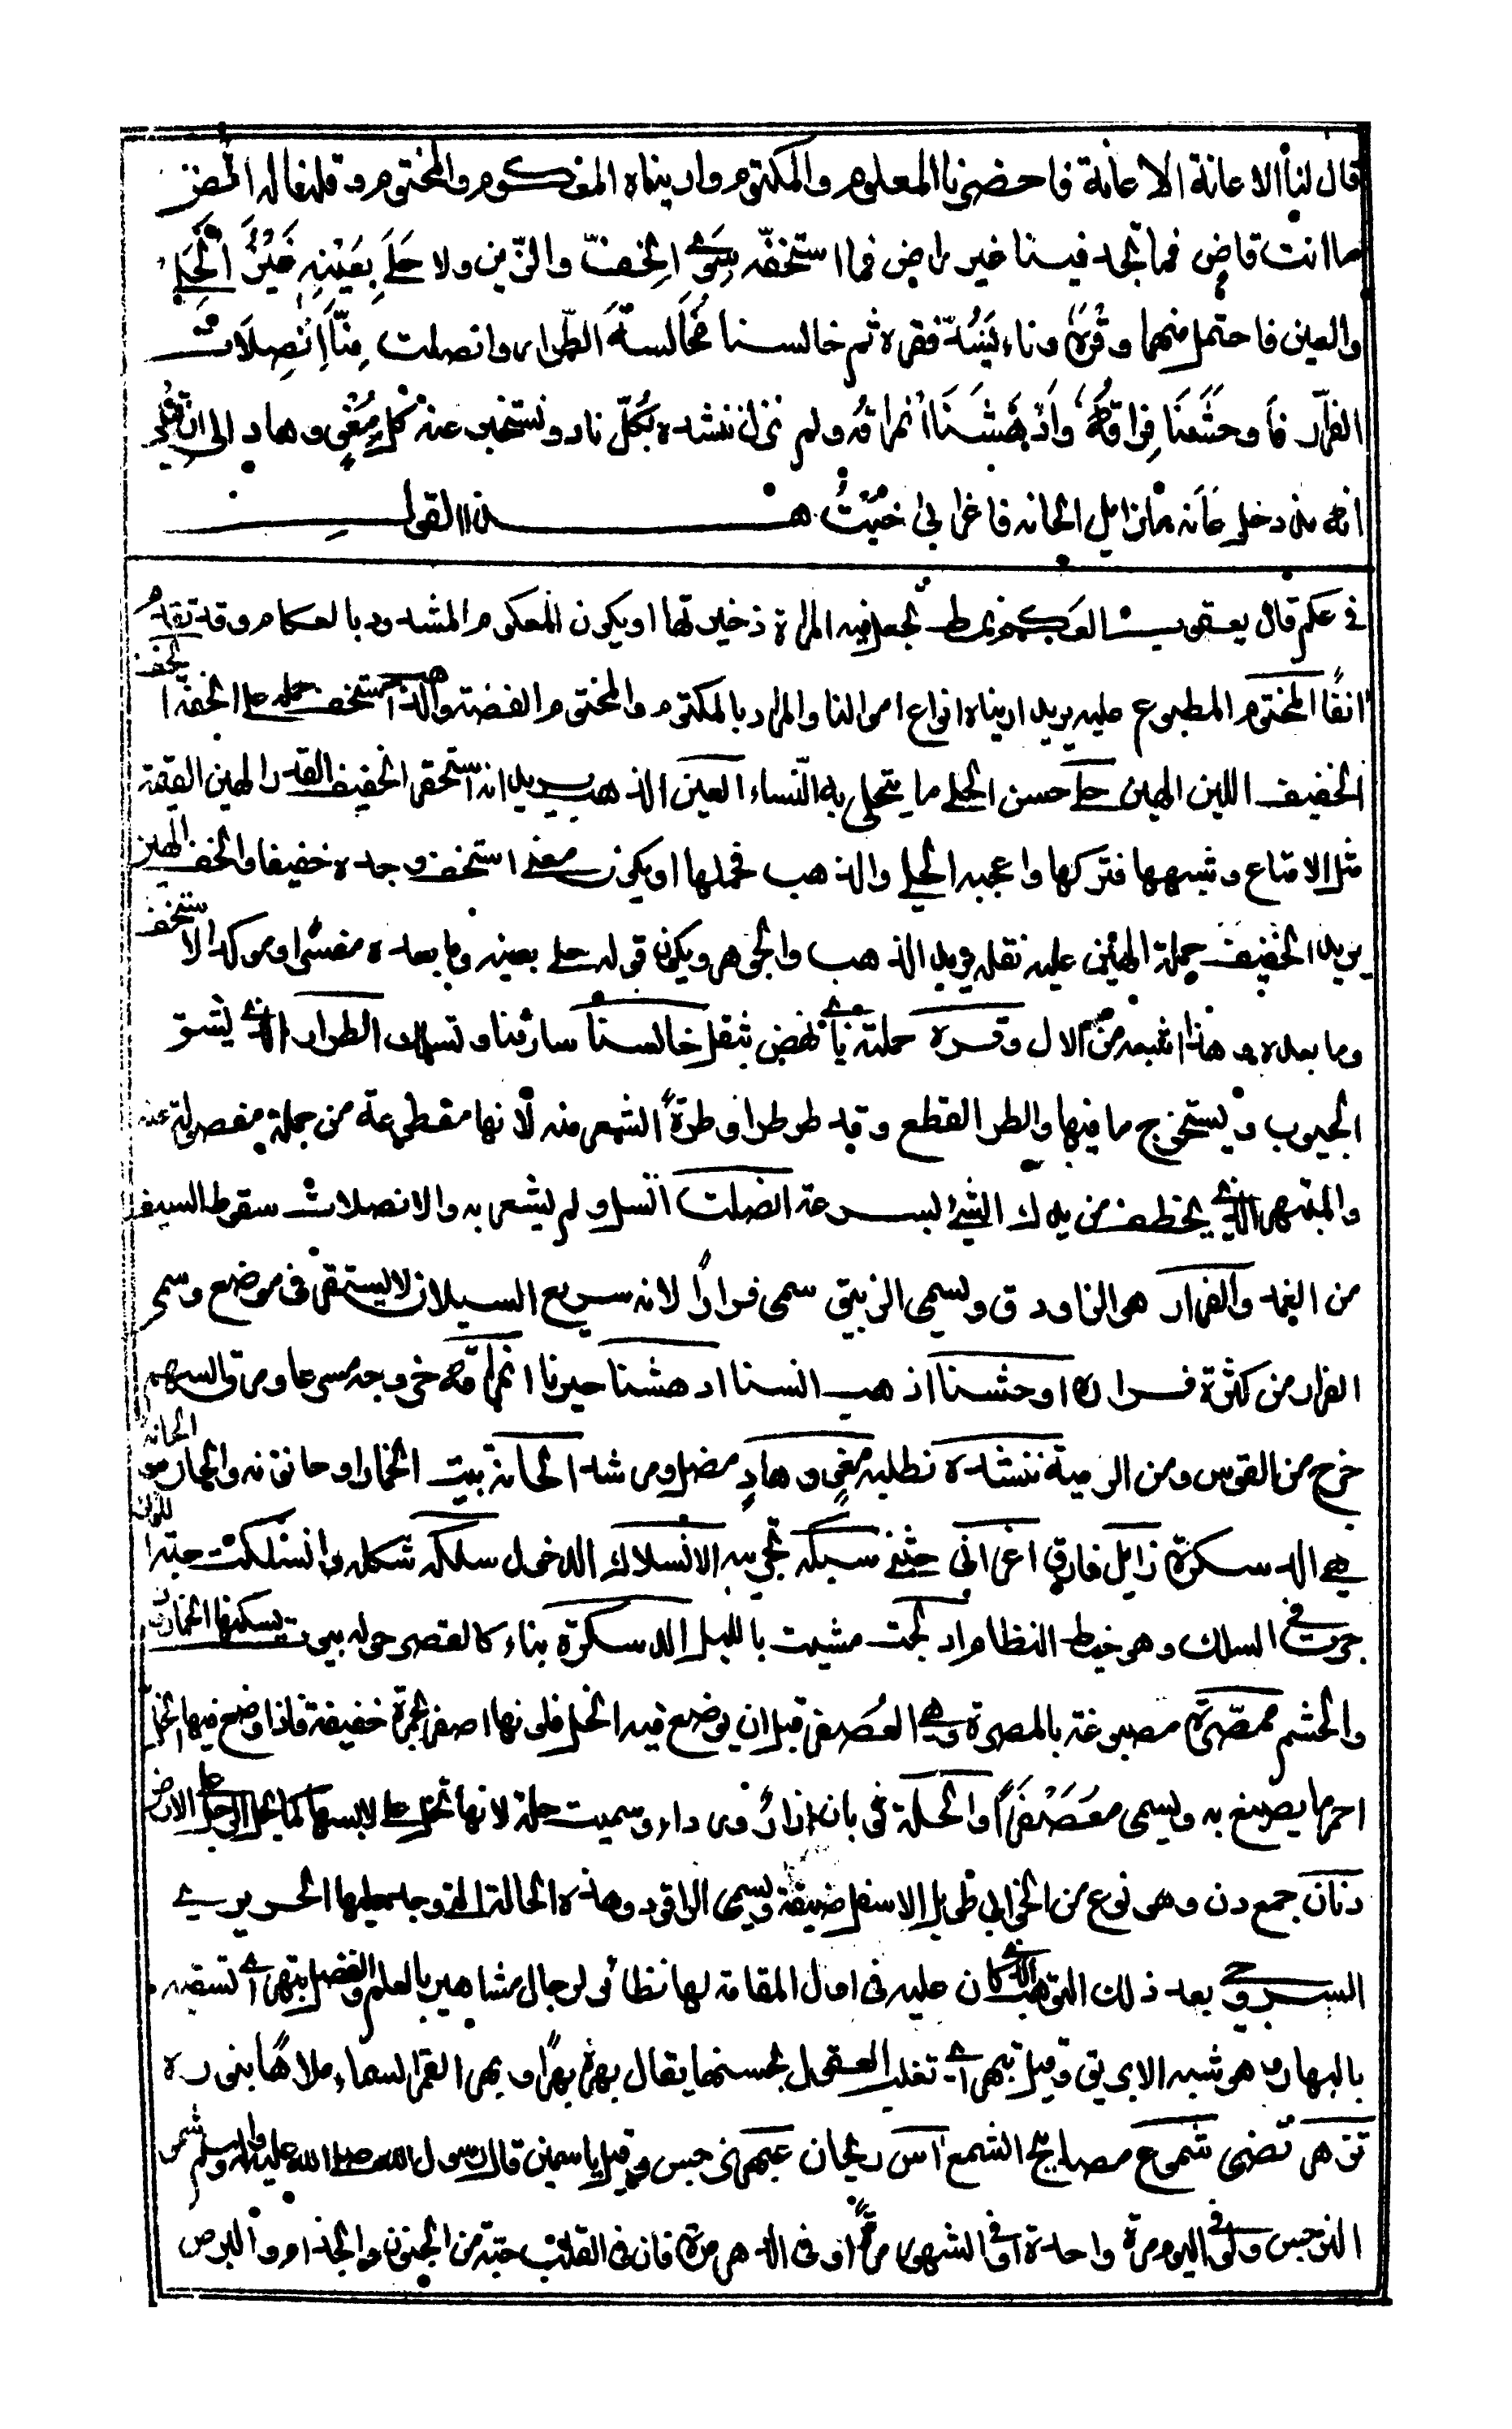 قال لنا الاعانة الاعانة فاحضرنا المعلوم والمكتوم واريناه المعكوم والمختوم وقلنا له اقض
ما انت قاض فما تجد فينا غير راض فما استخفه سوى الخف والزين ولا حلي بعينه غير الحلي
والعين فاحتمل منهما وقره وناء بما يسد فقره ثم خالسنا مخالسة الطرار وانصلت منا انصلات
الفرار فاوحشنا فراقه وادهشنا امراقه ولم نزل ننشده بكل ناد ونستخبر عنه كل مغو وهاد الى ان قيل
انه مذ دخل عانة ما زايل الحانه فاغراني خبث هذا القول
في عكم قال يعقوب العكم نمط تجعل فيه المراة ذخيرتها او يكون المعكوم المشدود بالعكام وقد تقدم
انفا المختوم المطبوع عليه يريد اريناه انواع اموالنا والمراد بالمكتوم والمختوم الفضة والذهب استخف حمله على الخفة الخف
الخفيف اللين الهين حلي حسن الحلي ما يتحلى به النساء العين الذهب يريد انه استحقر الخفيف القدر الهين القيمة
مثل الامتاع وشبهها فتركها واعجبه الحلي والذهب فحملها او يكون معنى استخف وجده خفيفا والخف الهين
يريد الخفيف حملة الهين عليه نقله يريد الذهب والجوهر ويكون قوله حلي بعينه وما بعده مفسرا وموكدا لاستخف
وما بعده وهذا اشبه من الاول وقره حملته ناء نهض بثقل خالسنا سارقنا وتسلل الطرار الذي يشق
الجيوب ويستخرج ما فيها والطر القطع وقد طر طرا وطرة الشعر منه لانها مقطوعة من جملة مفصولة عنه
والمبتهر الذي يخطف من يدك الشئ بسرعة انصلت انسل ولم يشعر به والانصلات سقوط السيف
من الغمد والفرار هو الزاووق ويسمى الزيبق سمى فرارا لانه سريع السيلان لا يستقر فى موضع وسمى
الفرار من كثرة فراره اوحشنا اذهب انسنا ادهشنا حيرنا امراقه خروجه مسرعا ومرق السهم
خرج من القوس ومن الرمية ننشده نطلبه مغو وهاد مضل ومرشد الحانة بيت الخمار او حانوته والحان الحانة
هي الدسكرة زايل فارق اغراني حثني سبكه تجربه الانسلاك الدخول سلكه شكله وانسلكت حبة اللولو
جرت في السلك وهو خيط النظام ادلجت مشيت بالليل الدسكرة بناء كالقصر حوله بيوت يسكنها الخمارون
والحشم ممصرة مصبوغة بالمصرة وهي العصفر قبل ان يوضع فيه الخل فلونها اصفر بحمرة خفيفة فاذا وضع فيها الخل
احمر ما يصبغ به ويسمى معصفرا والحلة ثوبان ازار ورداء وسميت حلة لانها تحل على لابسها كما يحل الرجل على الارض
دنان جمع دن وهى نوع من الخوابي طويل الاسفل ضيقة ويسمى الراقود وهذه الحالة التي وجد عليها الحريرى
السروجي بعد ذلك الترهب الذي كان عليه فى اول المقامة لها نظائر لرجال مشاهير بالعلم والفضل تبهر اى تسقيه
بالبهار وهو شبه الابريق وقيل تبهر اى تغلب العقول بحسنها يقال بهره بهرا وبهر القمر السماء ملاها بنوره
تزهر تضئ شموع مصابيح الشمع اس ريحان عبهر نرجس وقيل ياسمين قال رسول الله صلى الله عليه واله وسلم شموا
النرجس ولو فى اليوم مرة واحدة او فى الشهر مرة او فى الدهر مرة فان فى القلب حبة من الجنون والجذام والبرص